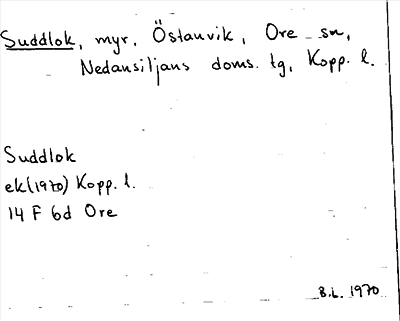 Suddlok, myr, Östanvik, Ore sn,
Nedansiljans doms. tg, Kopp. l.
Suddlok
ek (1970) Kopp. l.
14 F 6d Ore
B.L. 1970